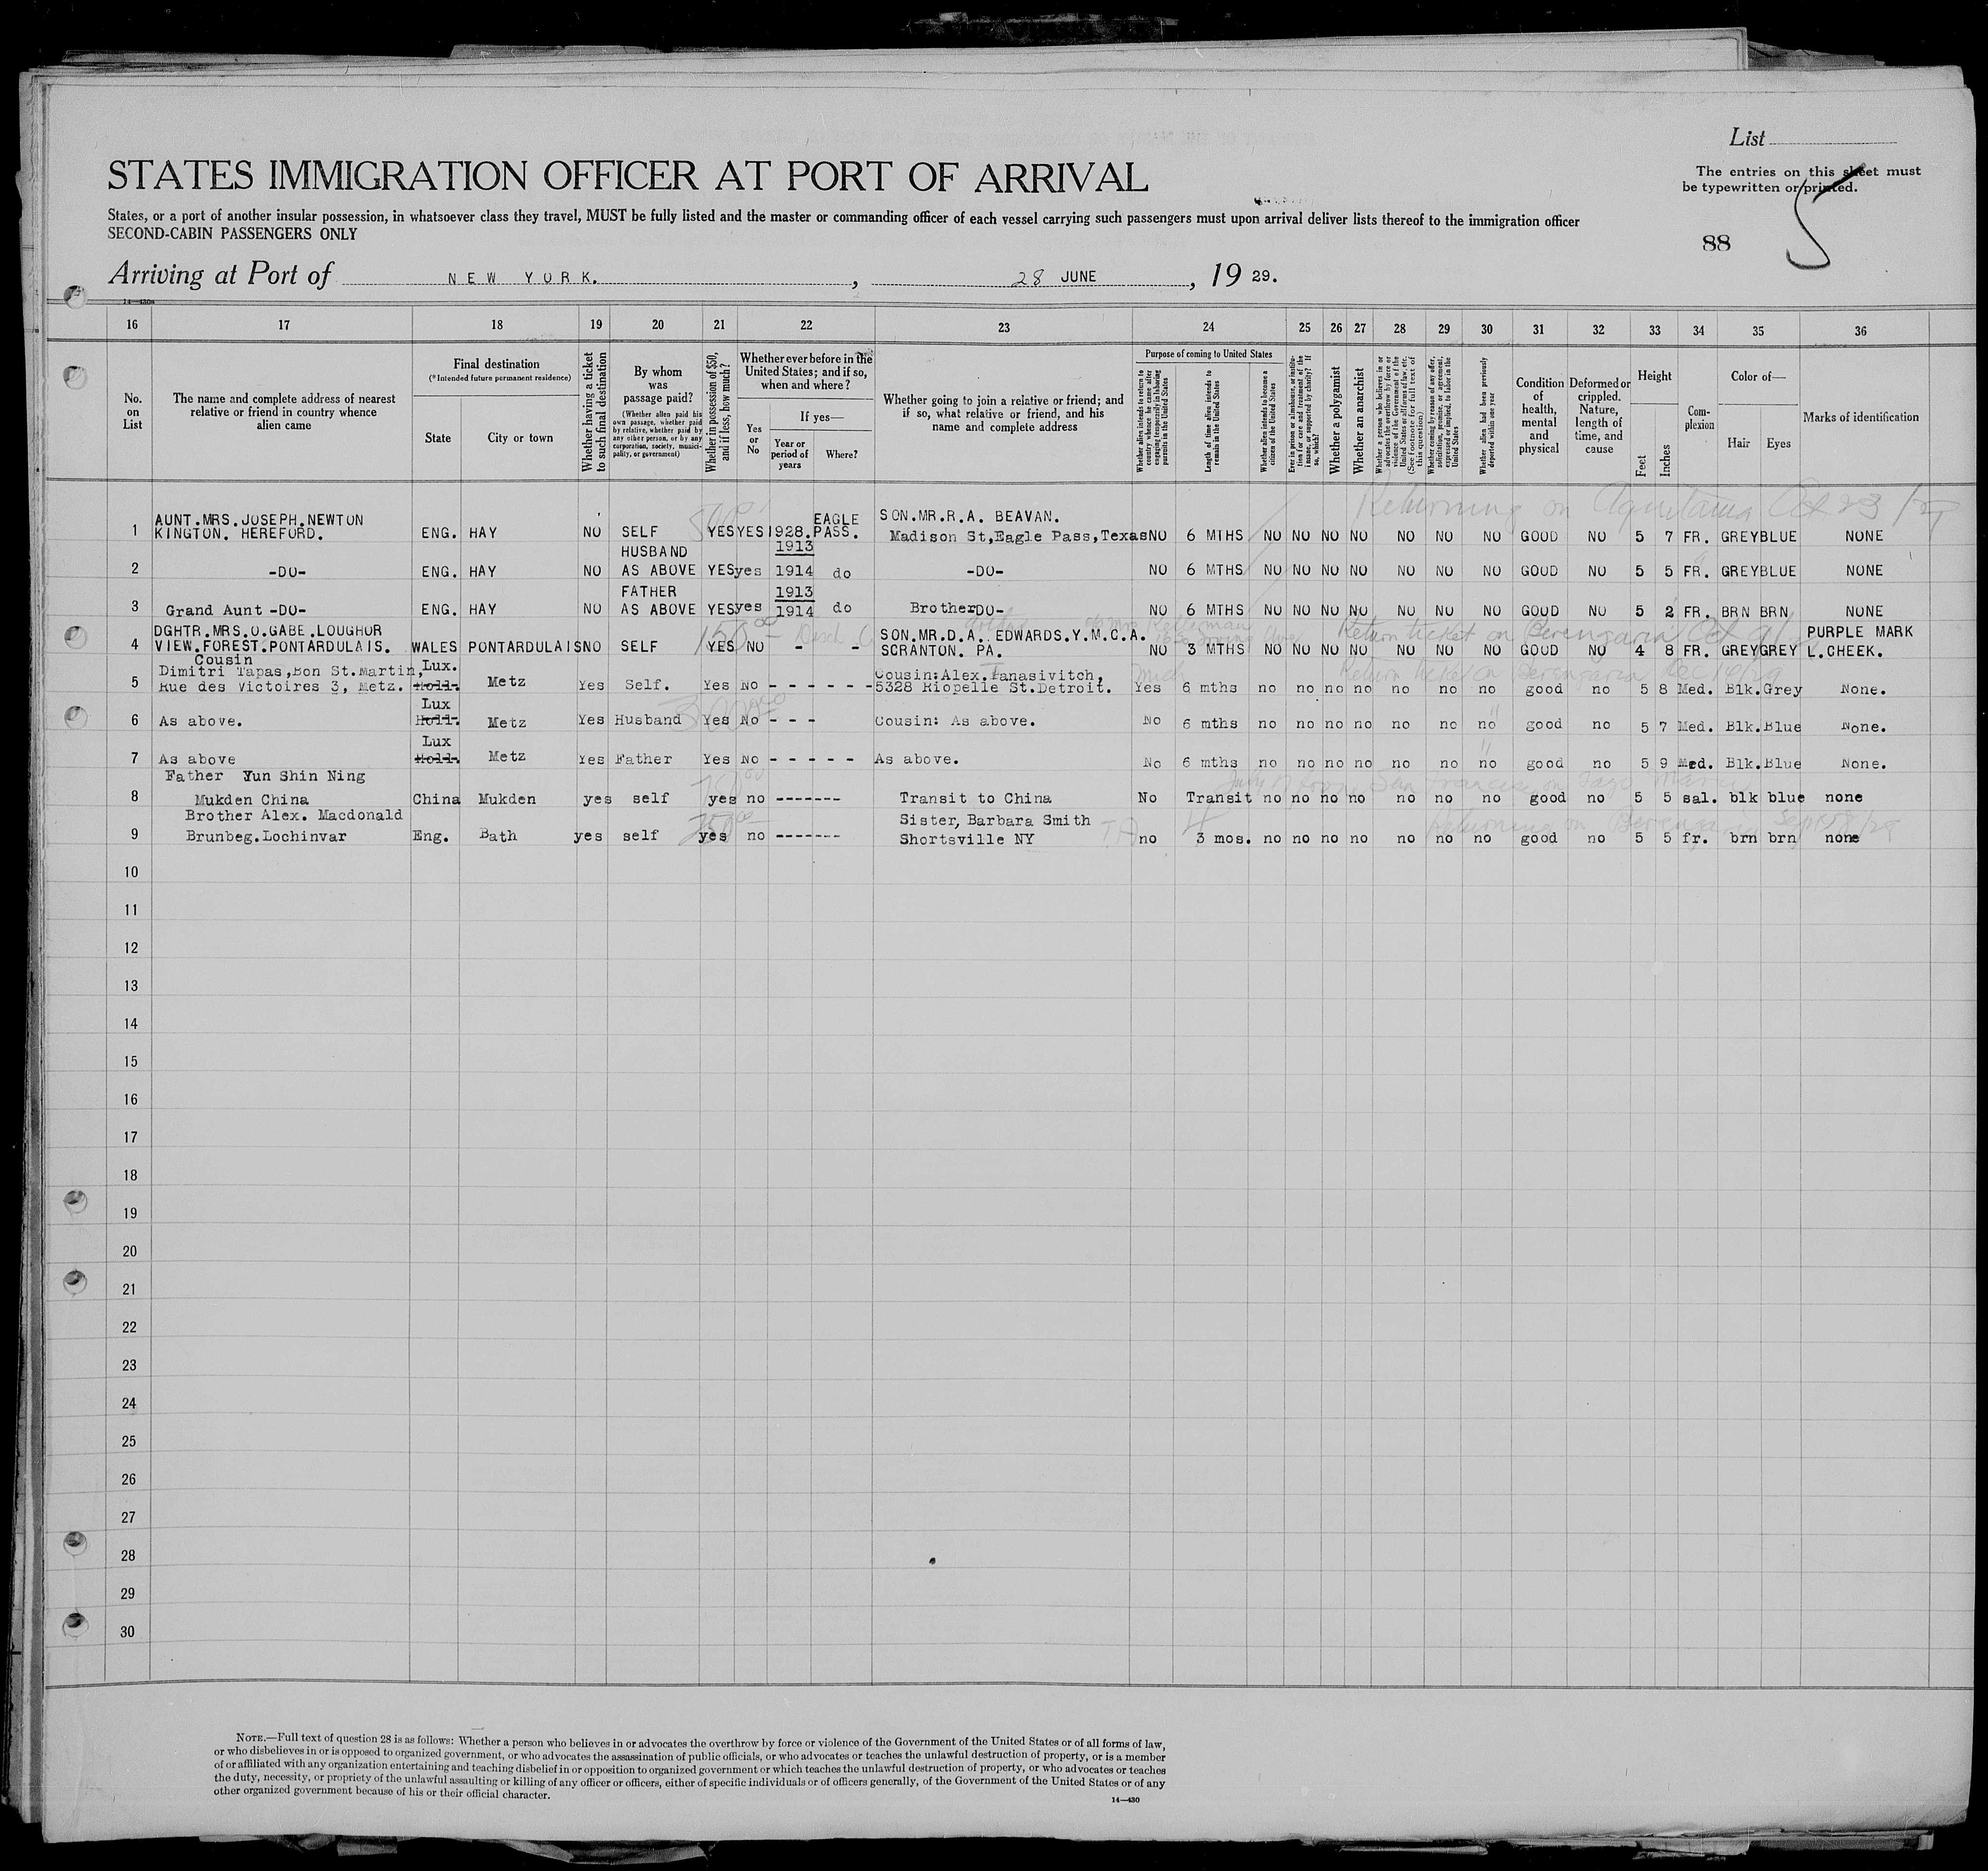 List
The entries on this sheet must
be typewritten or printed.
STATES IMMIGRATION OFFICER AT PORT OF ARRIVAL
States, or a port of another insular possession, in whatsoever class they travel, MUST be fully listed and the master or commanding officer of each vessel carrying such passengers must upon arrival deliver lists thereof to the immigration officer
SECOND-CABIN PASSENGERS ONLY
88
5
Arriving at Port of NEW YORK. , 28 JUNE , 19 29.
14—430a
16 17 18 19 20 21 22 23 24 25 26 27 28 29 30 31 32 33 34 35 36
No. on List
The name and complete address of nearest relative or friend in country whence alien came
Final destination
(*Intended future permanent residence)
State
City or town
Whether having a ticket to such final destination
By whom was passage paid?
(Whether alien paid his own passage, whether paid by relative, whether paid by any other person, or by any corporation, society, municipality, or government)
Whether in possession of $50, and if less, how much?
Whether ever before in the United States; and if so, when and where?
Yes or No
If yes—
Year or period of years
Where?
Whether going to join a relative or friend; and if so, what relative or friend, and his name and complete address
Purpose of coming to United States
Whether alien intends to return to country whence he came after engaging temporarily in laboring pursuits in the United States
Length of time alien intends to remain in the United States
Whether alien intends to become a citizen of the United States
Ever in prison or almshouse, or institution for care and treatment of the insane, or supported by charity? If so, which?
Whether a polygamist
Whether an anarchist
Whether a person who believes in or advocates the overthrow by force or violence of the Government of the United States or all forms of law, etc. (See footnote for full text of this question)
Whether coming by reason of any offer, solicitation, promise, or agreement, expressed or implied, to labor in the United States
Whether alien had been previously deported within one year
Condition of health, mental and physical
Deformed or crippled. Nature, length of time, and cause
Height
Feet
Inches
Complexion
Color of—
Hair
Eyes
Marks of identification
Returning on Aquitania Oct 23/29
AUNT.MRS.JOSEPH.NEWTON EAGLE SON.MR.R.A. BEAVAN.
1 KINGTON. HEREFORD. ENG. HAY NO SELF YES YES 1928. PASS. Madison St,Eagle Pass,Texas NO 6 MTHS NO NO NO NO NO NO NO GOOD NO 5 7 FR. GREY BLUE NONE
HUSBAND 1913
2 -DO- ENG. HAY NO AS ABOVE YES yes 1914 do -DO- NO 6 MTHS NO NO NO NO NO NO NO GOOD NO 5 5 FR. GREY BLUE NONE
FATHER 1913
3 Grand Aunt -DO- ENG. HAY NO AS ABOVE YES yes 1914 do Brother DO- NO 6 MTHS NO NO NO NO NO NO NO GOOD NO 5 2 FR. BRN BRN NONE
DGHTR.MRS.O.GABE.LOUGHOR 150 SON.MR.D.A. EDWARDS.Y.M.C.A. Return ticket on Berengaria Oct PURPLE MARK
4 VIEW.FOREST.PONTARDULAIS. WALES PONTARDULAIS NO SELF YES NO - - SCRANTON. PA. NO 3 MTHS NO NO NO NO NO NO NO GOOD NO 4 8 FR. GREY GREY L.CHEEK.
Cousin
Dimitri Tapas,Bon St.Martin, Lux. Cousin:Alex.Tanasivitch, Mich Return ticket on Berengaria Dec 19/29
5 Rue des Victoires 3, Metz. Holl. Metz Yes Self. Yes No - - - - - - 5328 Riopelle St.Detroit. Yes 6 mths no no no no no no no good no 5 8 Med. Blk. Grey None.
Lux
6 As above. Holl. Metz Yes Husband Yes No - - - Cousin: As above. No 6 mths no no no no no no no good no 5 7 Med. Blk. Blue None.
Lux
7 As above Holl. Metz Yes Father Yes No - - - - - As above. No 6 mths no no no no no no no good no 5 9 Med. Blk. Blue None.
Father Yun Shin Ning
8 Mukden China China Mukden yes self yes no ------- Transit to China No Transit no no no no no no no good no 5 5 sal. blk blue none
Brother Alex. Macdonald Sister, Barbara Smith Returning on Berengaria Sept
9 Brunbeg.Lochinvar Eng. Bath yes self yes no ------- Shortsville NY no 3 mos. no no no no no no no good no 5 5 fr. brn brn none
10
11
12
13
14
15
16
17
18
19
20
21
22
23
24
25
26
27
28
29
30
NOTE.—Full text of question 28 is as follows: Whether a person who believes in or advocates the overthrow by force or violence of the Government of the United States or of all forms of law,
or who disbelieves in or is opposed to organized government, or who advocates the assassination of public officials, or who advocates or teaches the unlawful destruction of property, or is a member
of or affiliated with any organization entertaining and teaching disbelief in or opposition to organized government or which teaches the unlawful destruction of property, or who advocates or teaches
the duty, necessity, or propriety of the unlawful assaulting or killing of any officer or officers, either of specific individuals or of officers generally, of the Government of the United States or of any
other organized government because of his or their official character.
14—430